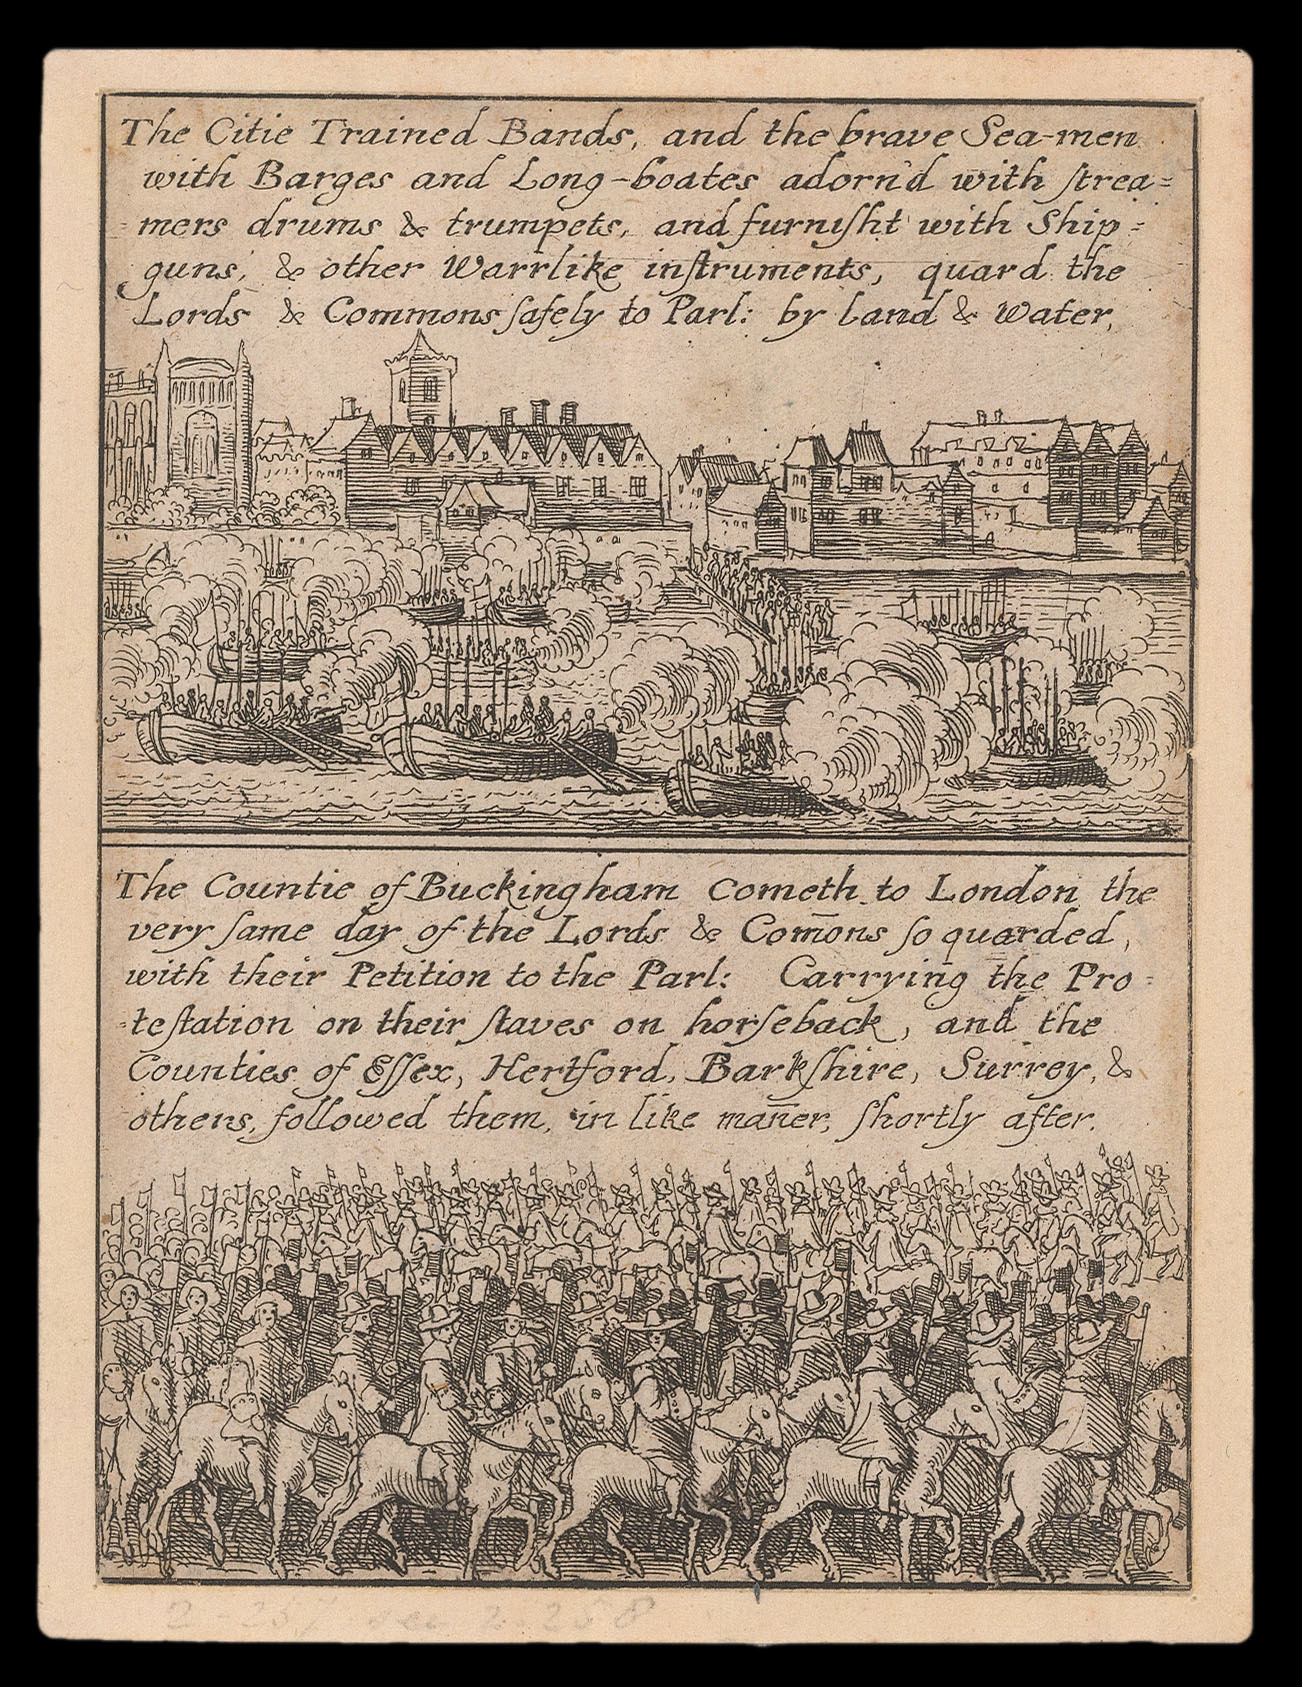 The Citie Trained Bands, and the brave Sea-men
with Barges and Long-boates adorn'd with ſtrea=
mers drums & trumpets, and furniſht with Ship-
guns, & other Warrlike inſtruments, quard the
Lords & Commons ſafely to Parl: by land & water,
The Countie of Buckingham cometh to London the
very ſame day of the Lords & Com̄ons ſo quarded,
with their Petition to the Parl: Carrying the Pro-
teſtation on their ſtaves on horſeback, and the
Counties of Eſſex, Hertford, Barkſhire, Surrey, &
others, followed them, in like man̄er, ſhortly after.